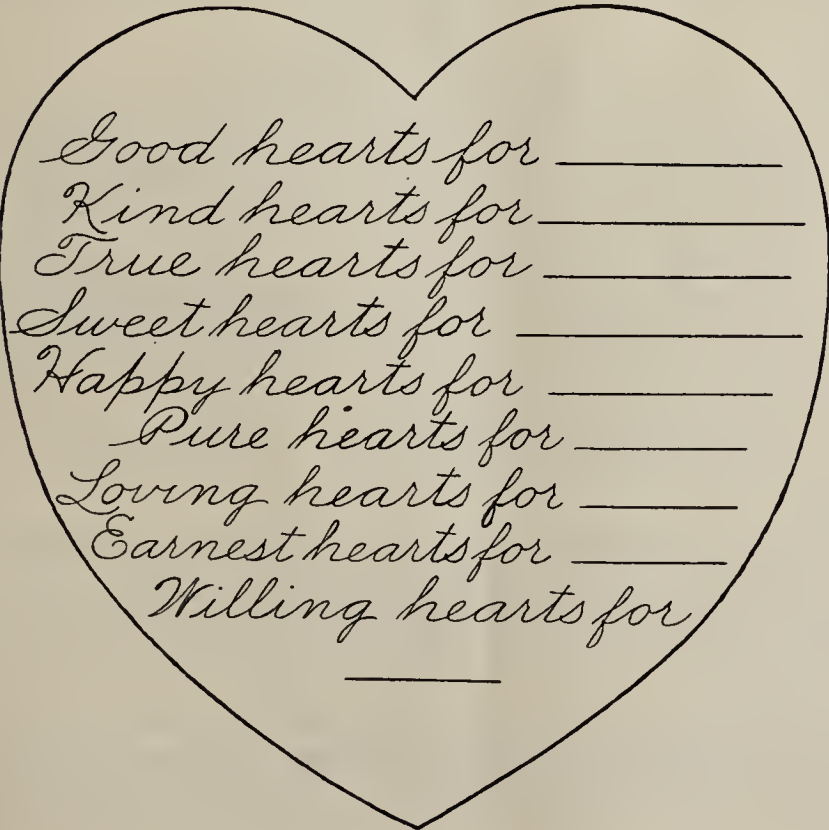 Good hearts for
Kind hearts for
True hearts for
Sweet hearts for
Happy hearts for
Pure hearts for
Loving hearts for
Earnest hearts for
Willing hearts for